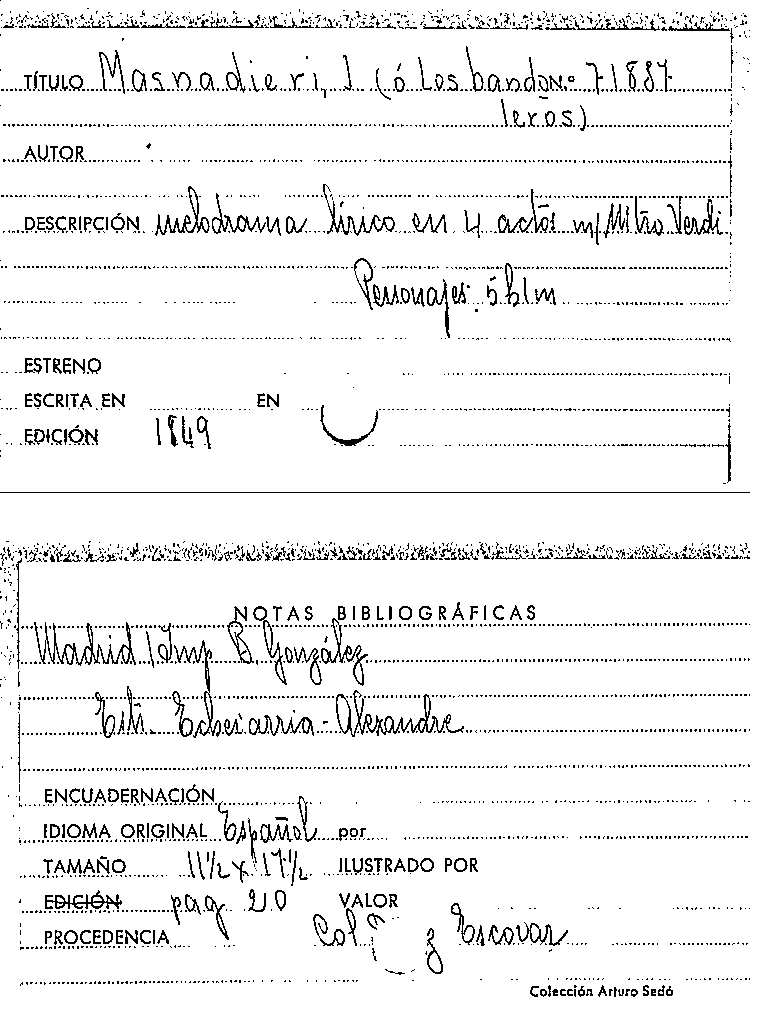 TÍTULO Masnadieri, I (ó Los bando N.º 71887
leros)
AUTOR
DESCRIPCIÓN melodrama lírico en 4 actos m/ Mtro Verdi
Personajes: 5 h 1 m
ESTRENO
ESCRITA EN EN
EDICIÓN 1849
NOTAS BIBLIOGRÁFICAS
Madrid Imp B. González
Estr. Echevarria - Alexandre
ENCUADERNACIÓN
IDIOMA ORIGINAL Español por
TAMAÑO 11½ x 17½ ILUSTRADO POR
EDICIÓN pag 20 VALOR
PROCEDENCIA Col z Escovar
Colección Arturo Sedó